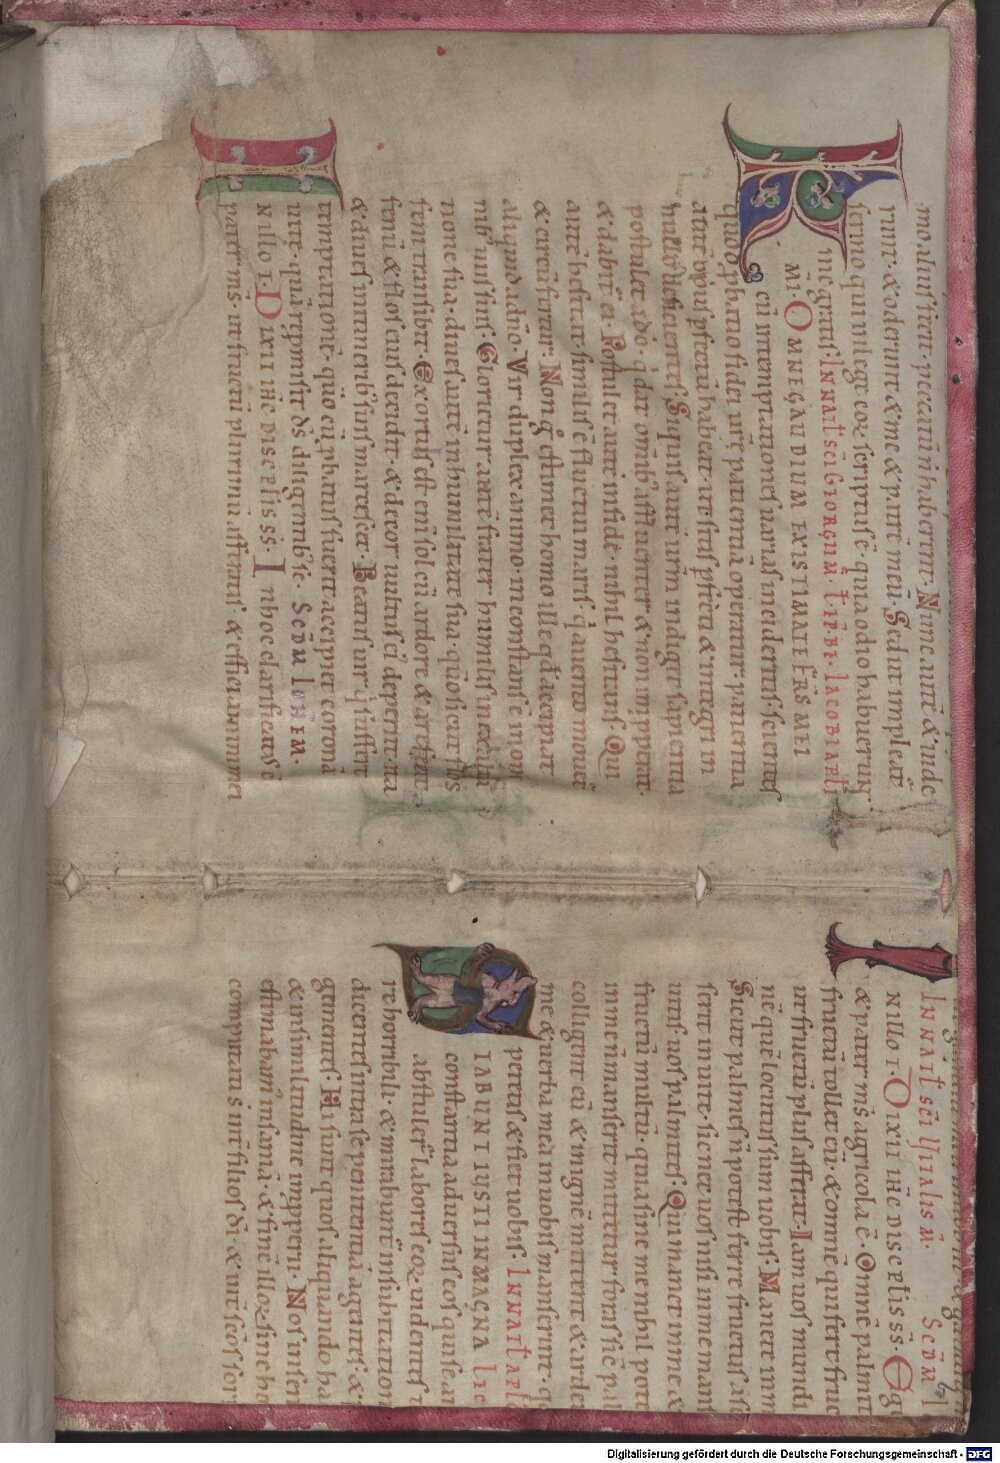 mo alius fecit. peccatū ñ haberent. Nunc autē & uide
runt. & oderunt & me & patrē meū. Sed ut impleat̄
sermo qui in lege eoꝝ scriptus ē. quia odio habuerunt
me gratis. IN NAT̄ SC̄I GIORGII M̄. L̄. EP̄. BI. IACOBI APL̄I
M̄I. OMNE GAUDIUM EXISTIMATE FR̄S MEI
cū in temptationes uarias incideritis. scientes
quod ꝓbatio fidei urē patientiā operatur. patientia
autē opus pfectū habeat. ut sitis pfecti & integri in
nullo deficientes. Siquis autē urm indiget sapientia
postulet a dō. q̇ dat omīb; affluenter & non impperat.
& dabit̄ ei. Postulet autē in fide. nihil hesitans. Qui
autē hesitat. similis ē fluctui maris. q̇ a uento mouet̄
& circūfertur. Non g̊ estimet homo ille qđ accipiat
aliquid a dn̄o. Vir duplex animo. inconstans ē in om
nib; uiis suis. Glorietur autē frater humilis in exalta
tione sua. diues autē in humilitate sua. qūo sicut flos
feni transibit. Exortus est eni sol cū ardore. & arefecit
fenū & flos eius decidit. & decor uultus ei' deperiit. ita
& diues in itinerib; suis marcescet. Beatus uir q̇ suffert
temptationē. qūo cū ꝓbatus fuerit accipiet coronā
uite. quā repmisit dš diligentib; se. SCD̄M IOHEM.
N ILLO T̄. DIXIT IHC DISCPLIS S̄S. IN hoc clarificatus ē
pater m̄s. ut fructū plurimū afferatis. & efficiamini mei
IN NAT̄ SC̄I UITALIS M̄. SCD̄M
N ILLO T̄. DIXIT IHC DISCPLIS S̄S. Ego
& pater m̄s agricola ē. Omnē palmitē
fructū tollet eū. & omnē qui fert fruc
ut fructū plus afferat. Iam uos mundi
nē quē locutus sum uobis. Manete in m
Sicut palmes ñ potest ferre fructus a s
serit in uite. sic nec uos nisi in me man
uitis uos palmites. Qui manet in me &
fructū multū. quia sine me nihil pote
in me ñ manserit mittetur foras sic̄ pal
colligent eū & in ignē mittent & arde
me & uerba mea in uobis manserint. q
petetis & fiet uobis. IN NAT̄ APL̄
TABUNT IUSTI IN MAGNA LIC
constantia aduersus eos qui se an
abstuler̄ labores eoꝝ. uidentes t
re horribili. & mirabunt̄ in subitation
dicentes intra se penitentiā agentes. &
gementes. Hi sunt quos aliquando ha
& in similitudine impperii. Nos insen
estimabam̄ insaniā. & finē illoꝝ sine ho
computati s̄ int̄ filios dī. & int̄ sc̄os sor
Digitalisierung gefördert durch die Deutsche Forschungsgemeinschaft - DFG